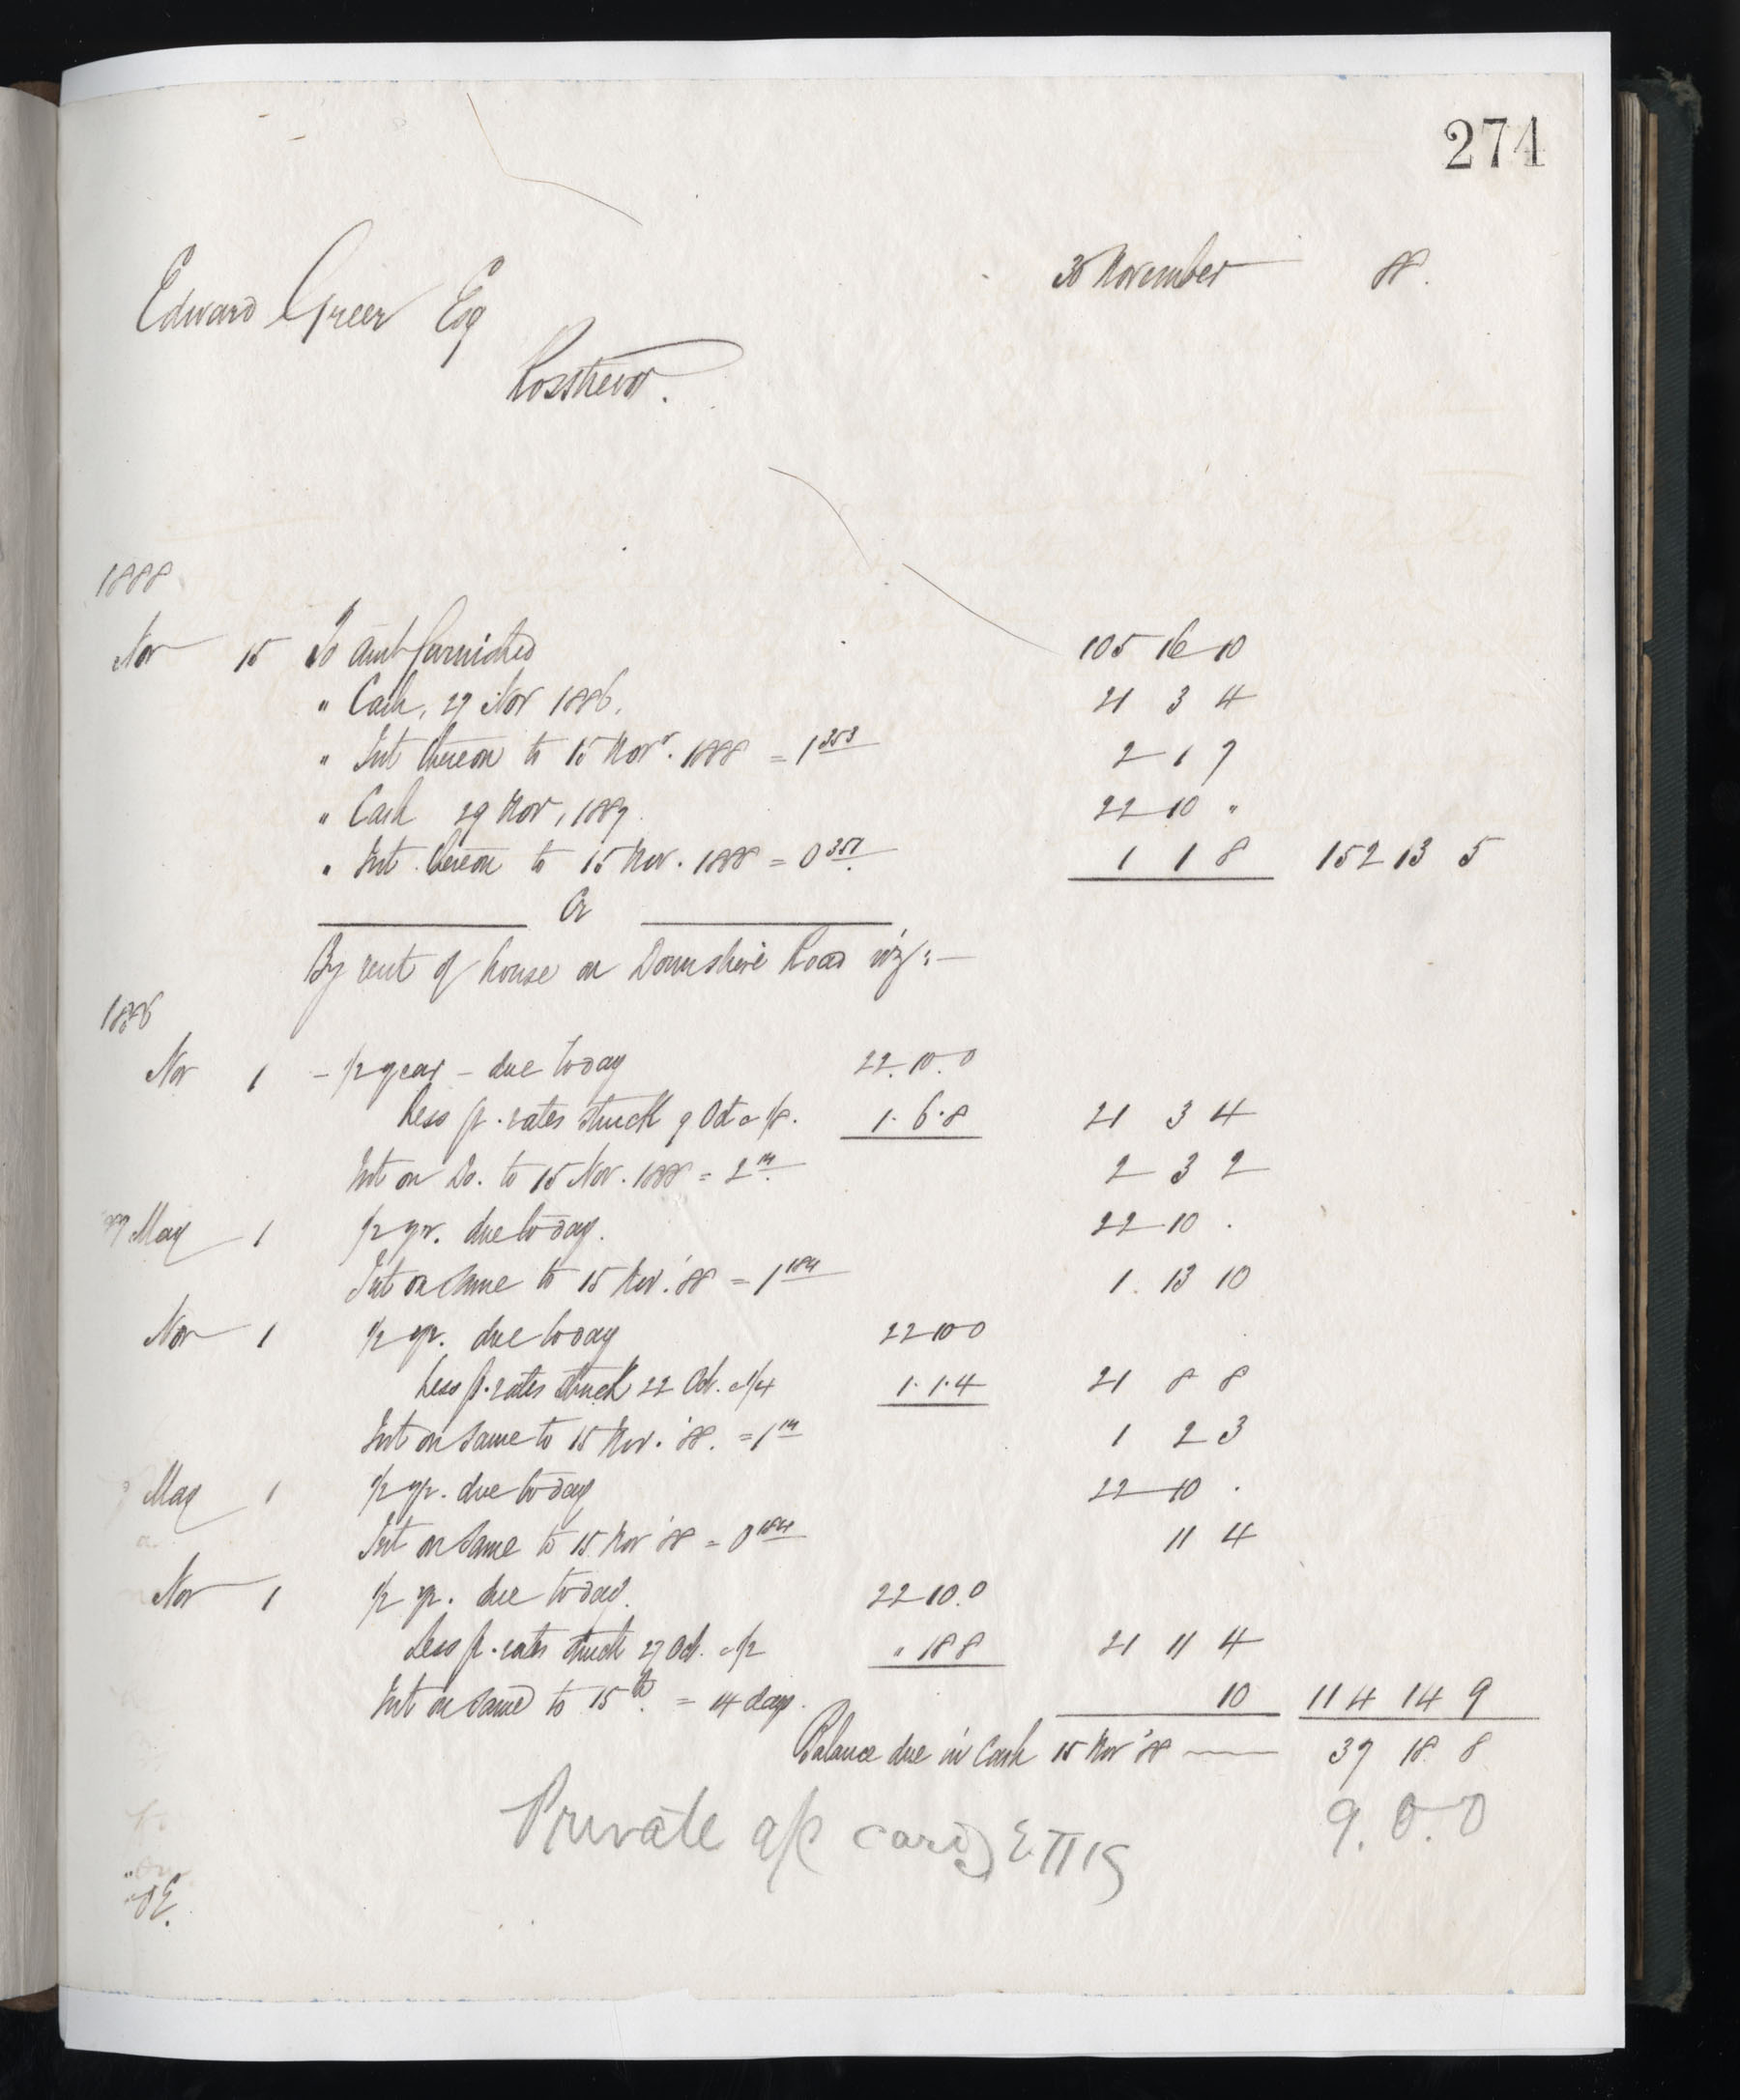 274
30 November 88.
Edward Greer Esq
Rosstrevor.
1888
Nov 15 To amt furnished 105 16 10
" Cash, 27 Nov 1886. 21 3 4
" Int thereon to 15 Novr. 1888 = 1 353 2 1 7
" Cash 29 Nov, 1887. 22 10 "
" Int thereon to 15 Nov. 1888 = 0 351 1 1 8 152 13 5
Cr
By rent of house on Downshire Road viz:—
1886
Nov 1 - 1/2 year - due today 22.10.0
Less p. rates struck 9 Oct @ 1/8. 1.6.8 21 3 4
Int on Do. to 15 Nov. 1888 = 2 14 2 3 2
87 May 1 1/2 yr. due today. 22 10 .
Int on same to 15 Nov. '88 = 1 184 1. 13 10
Nov 1 1/2 yr. due today 22 10 0
Less p. rates struck 22 Oct. @ 1/4 1.1.4 21 8 8
Int on same to 15 Nov. '88. = 1 14 1 2 3
May 1 1/2 yr. due today 22 10 .
Int on same to 15 Nov '88 = 0 184 11 4
Nov 1 1/2 yr. due today. 22 10.0
Less p. rates struck 27 Oct. @ 1/2 " 18 8 21 11 4
Int on same to 15th. = 14 days. 10 114 14 9
Balance due in Cash 15 Nov '88 — 37 18 8
Private a/c card 9.0.0